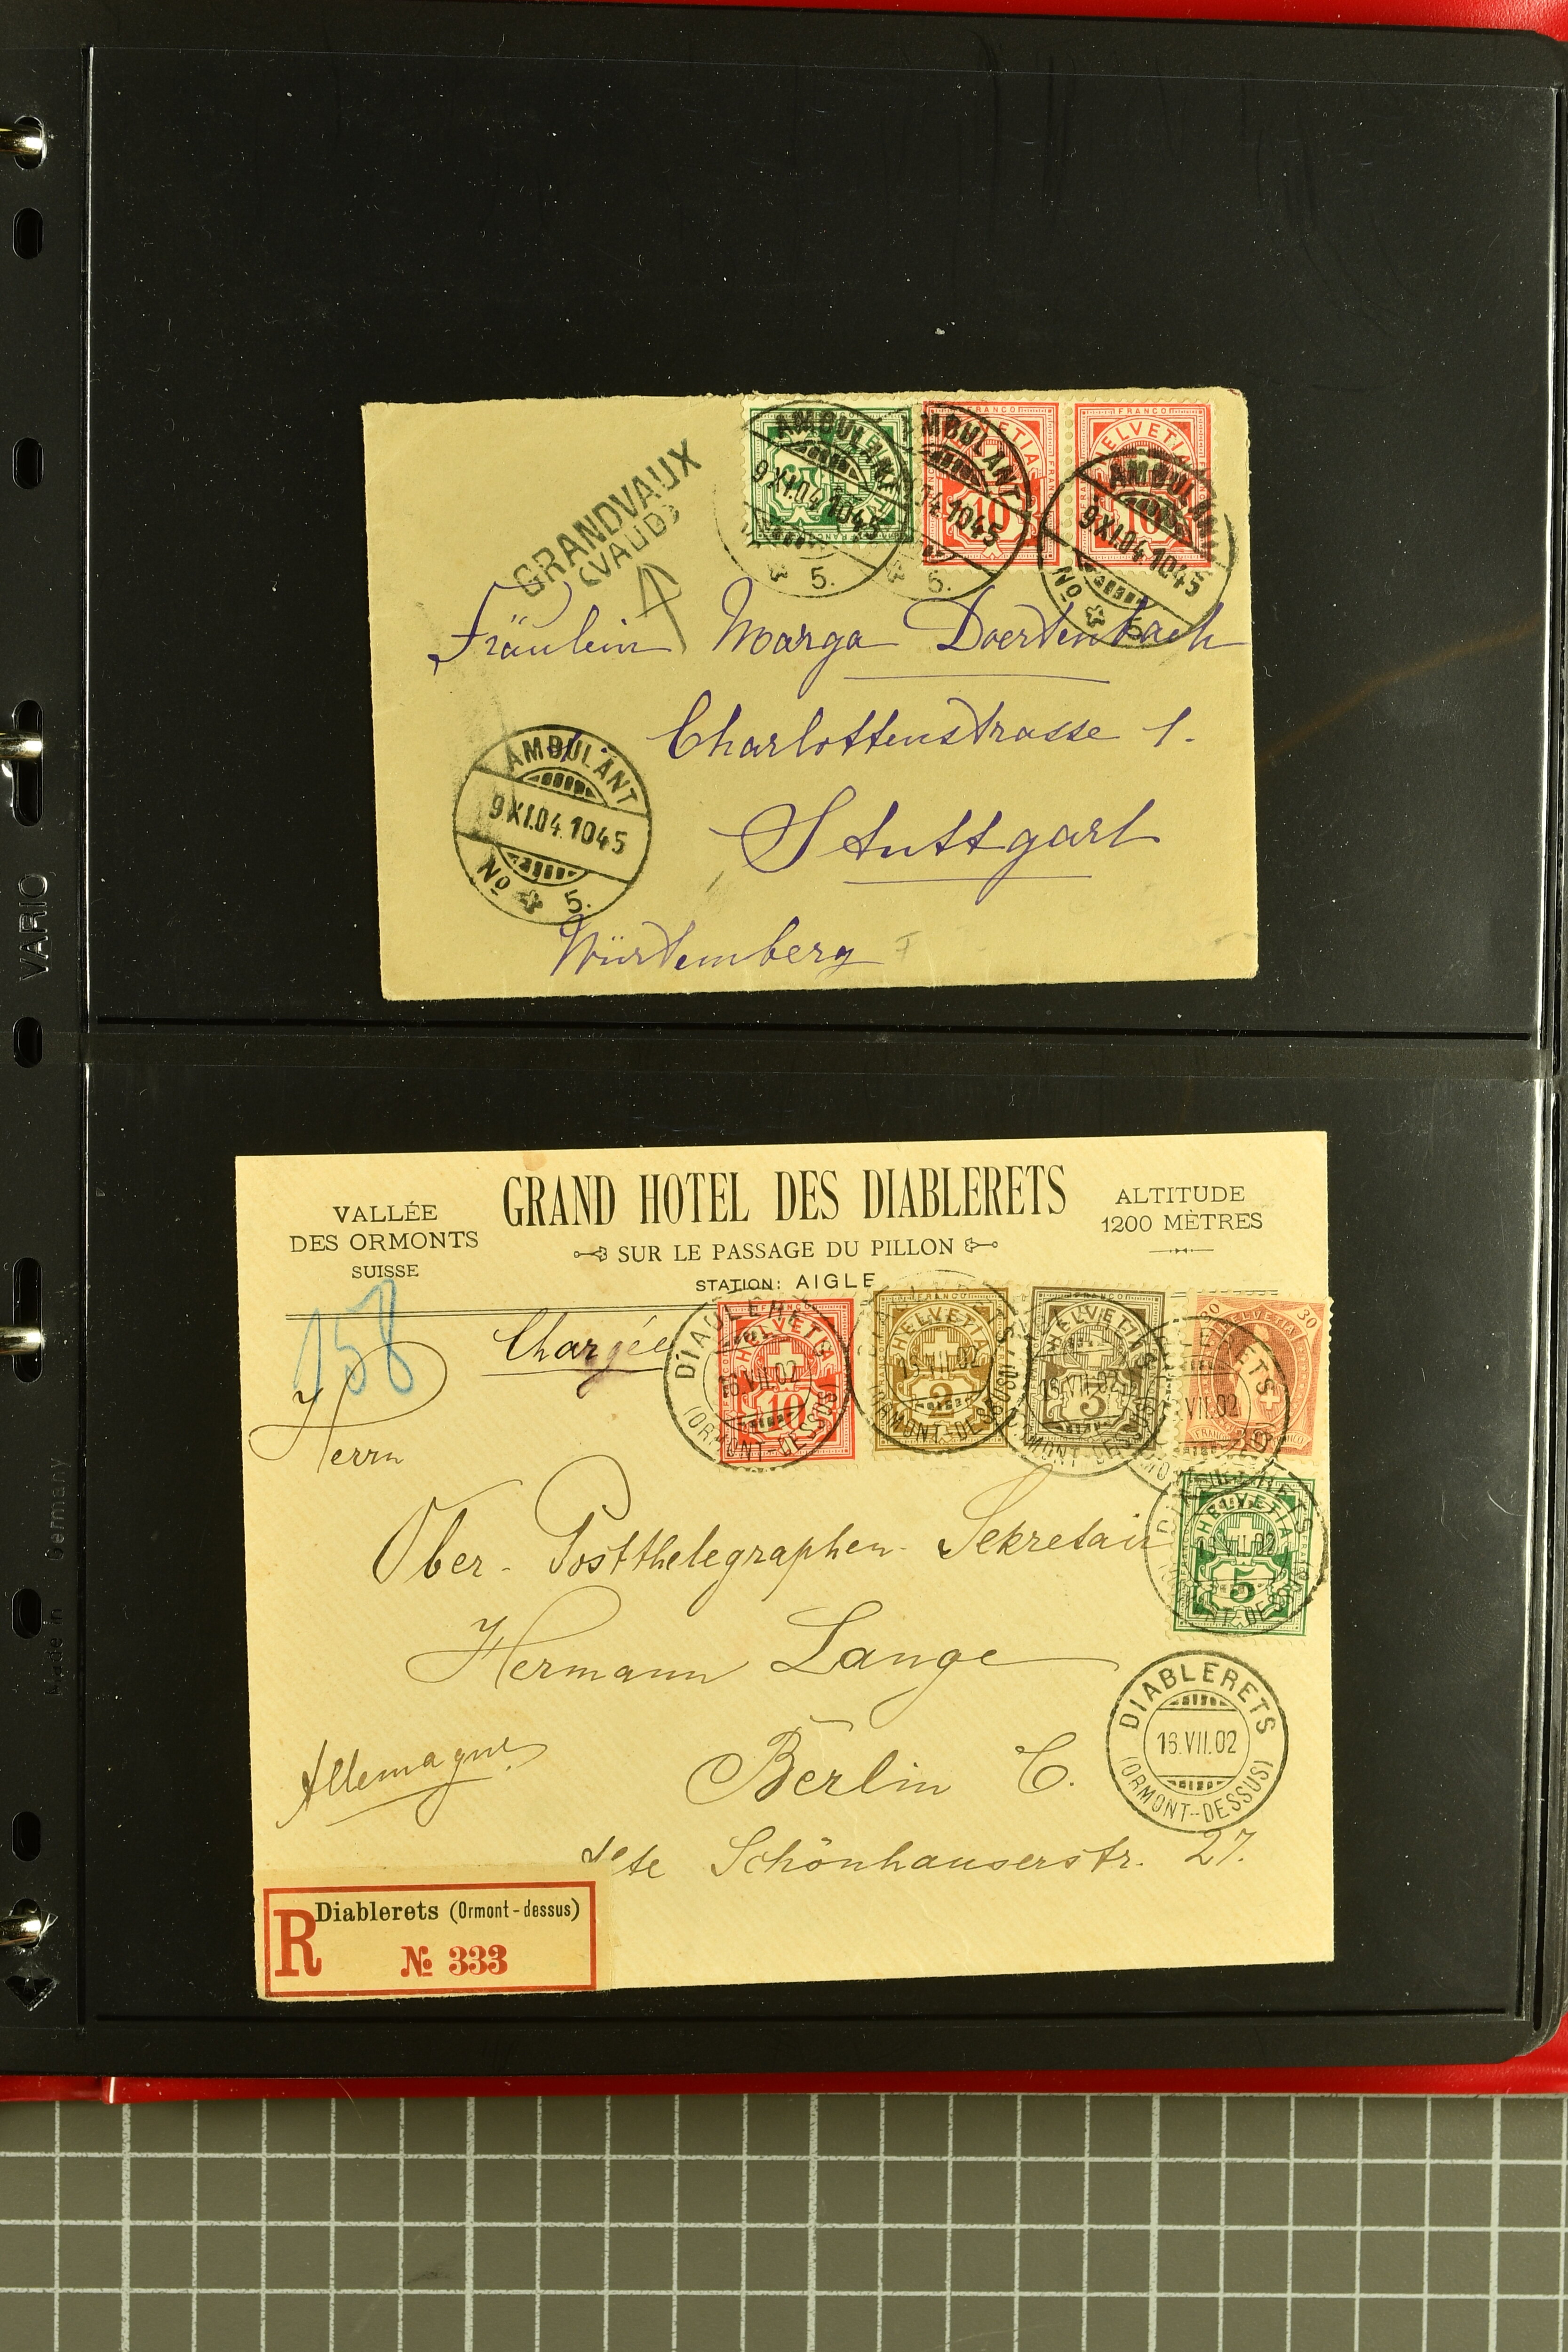 GRANDVAUX
(VAUD)
AMBULANT
9 XI.04.1045
5.
AMBULANT
4.1045
5.
FRANCO
HELVETIA
10
FRANCO
HELVETIA
10
AMBULANT
9 XI.04.1045
No 5.
Fräulein Marga Doertenbach
Charlottenstrasse 1.
Stuttgart
Würtemberg
AMBULANT
9 XI.04.1045
No 5.
VARIO
Made in Germany
VALLÉE
DES ORMONTS
SUISSE
GRAND HOTEL DES DIABLERETS
SUR LE PASSAGE DU PILLON
STATION: AIGLE
ALTITUDE
1200 MÈTRES
158
Chargée
FRANCO
HELVETIA
10
DIABLERETS
16.VII.02
(ORMONT-DESSUS)
FRANCO
HELVETIA
2
16.VII.02
FRANCO
HELVETIA
3
16.VII.02
30 HELVETIA 30
VII.02
HELVETIA
5
Herrn
Ober-Postthelegraphen-Sekretair
Hermann Lange
Berlin C.
Allemagne
Schönhauserstr. 27.
DIABLERETS
16.VII.02
(ORMONT-DESSUS)
R Diablerets (Ormont-dessus)
№ 333